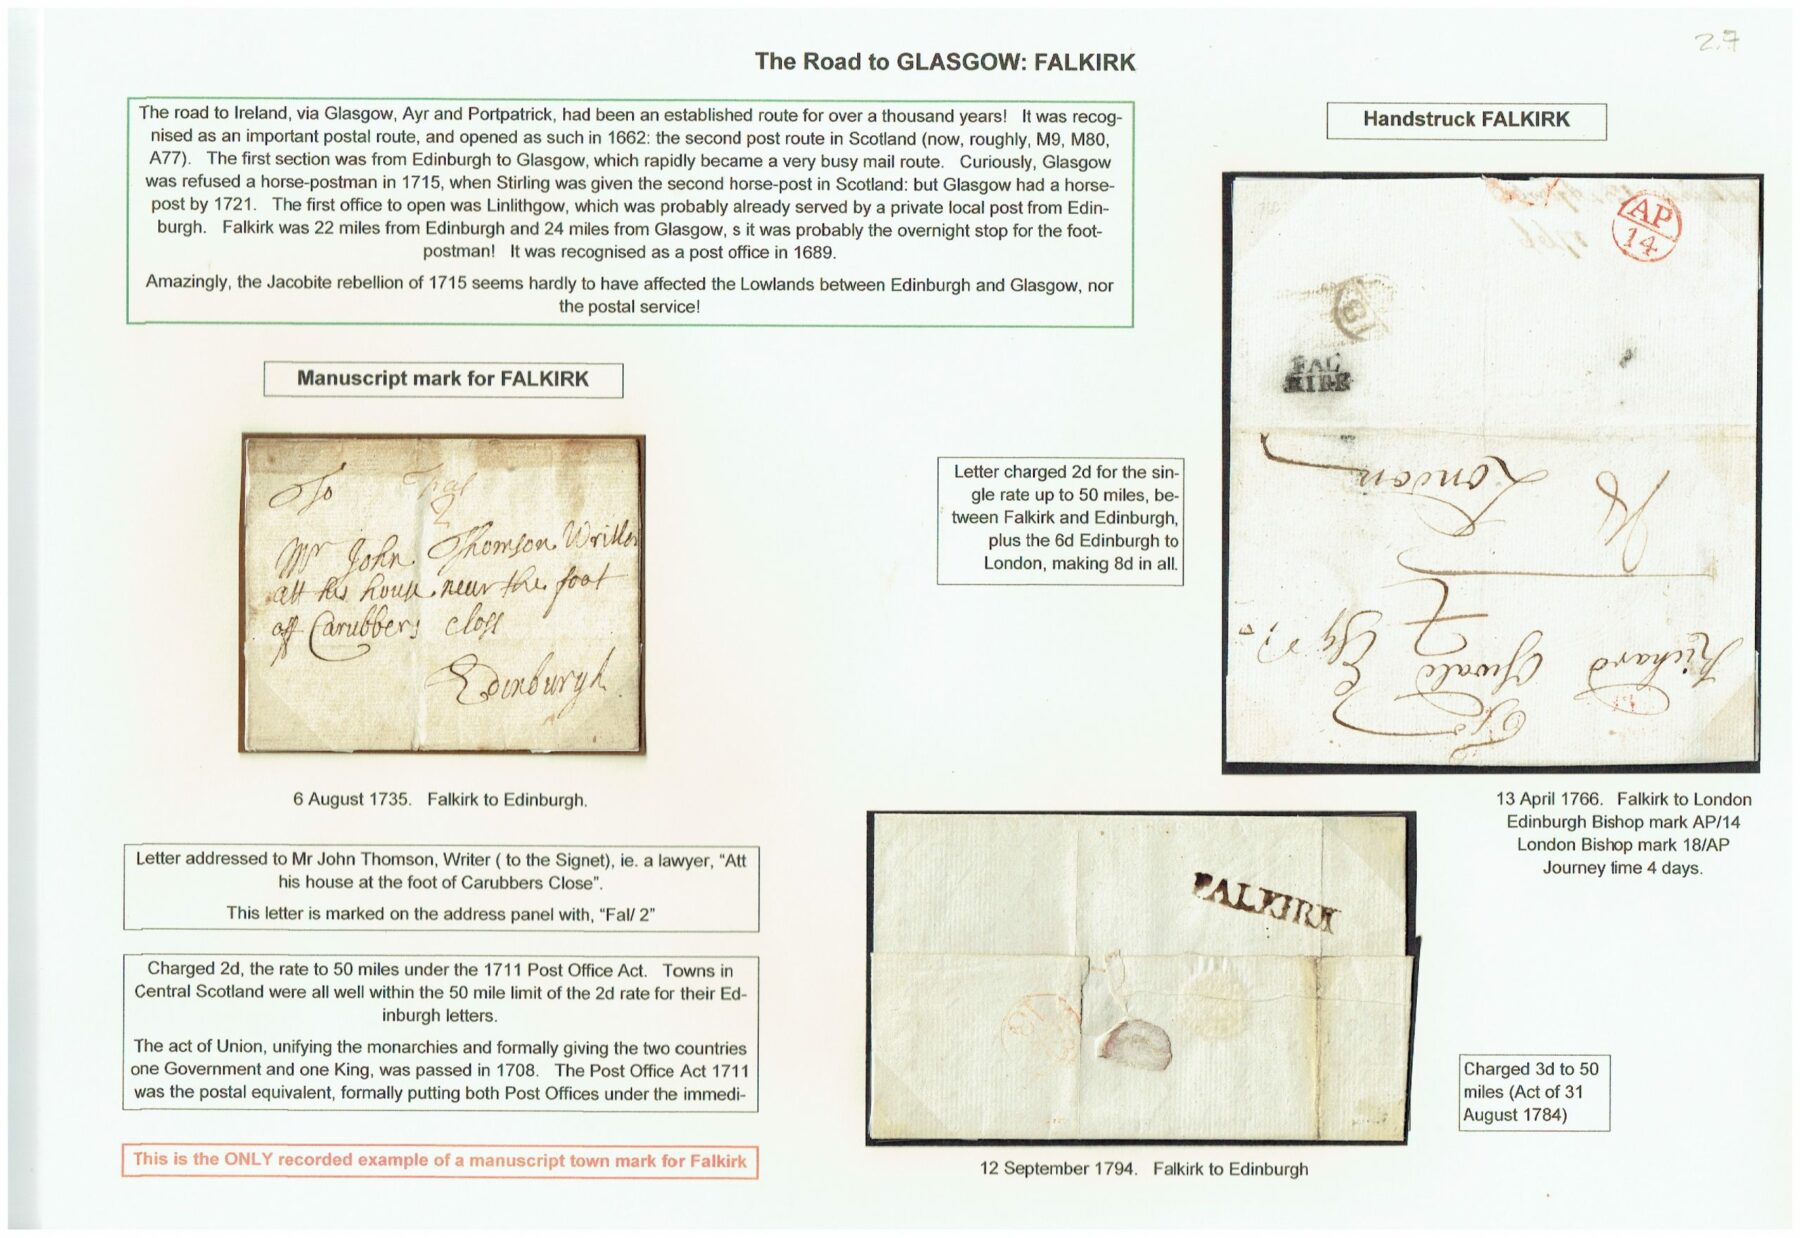 2.7
The Road to GLASGOW: FALKIRK
The road to Ireland, via Glasgow, Ayr and Portpatrick, had been an established route for over a thousand years!  It was recog-
nised as an important postal route, and opened as such in 1662: the second post route in Scotland (now, roughly, M9, M80,
A77).  The first section was from Edinburgh to Glasgow, which rapidly became a very busy mail route.  Curiously, Glasgow
was refused a horse-postman in 1715, when Stirling was given the second horse-post in Scotland: but Glasgow had a horse-
post by 1721.  The first office to open was Linlithgow, which was probably already served by a private local post from Edin-
burgh.  Falkirk was 22 miles from Edinburgh and 24 miles from Glasgow, s it was probably the overnight stop for the foot-
postman!  It was recognised as a post office in 1689.
Amazingly, the Jacobite rebellion of 1715 seems hardly to have affected the Lowlands between Edinburgh and Glasgow, nor
the postal service!
Manuscript mark for FALKIRK
To Fal
2
Mr John Thomson Writter
att his house near the foot
off Carubbers closs
Edinburgh
6 August 1735.  Falkirk to Edinburgh.
Letter addressed to Mr John Thomson, Writer ( to the Signet), ie. a lawyer, "Att
his house at the foot of Carubbers Close".
This letter is marked on the address panel with, "Fal/ 2"
Charged 2d, the rate to 50 miles under the 1711 Post Office Act.  Towns in
Central Scotland were all well within the 50 mile limit of the 2d rate for their Ed-
inburgh letters.
The act of Union, unifying the monarchies and formally giving the two countries
one Government and one King, was passed in 1708.  The Post Office Act 1711
was the postal equivalent, formally putting both Post Offices under the immedi-
This is the ONLY recorded example of a manuscript town mark for Falkirk
Handstruck FALKIRK
AP
14
18
FAL
KIRK
To
Richard Oswald Esqr
London
Letter charged 2d for the sin-
gle rate up to 50 miles, be-
tween Falkirk and Edinburgh,
plus the 6d Edinburgh to
London, making 8d in all.
13 April 1766.  Falkirk to London
Edinburgh Bishop mark AP/14
London Bishop mark 18/AP
Journey time 4 days.
FALKIRK
12 September 1794.  Falkirk to Edinburgh
Charged 3d to 50
miles (Act of 31
August 1784)